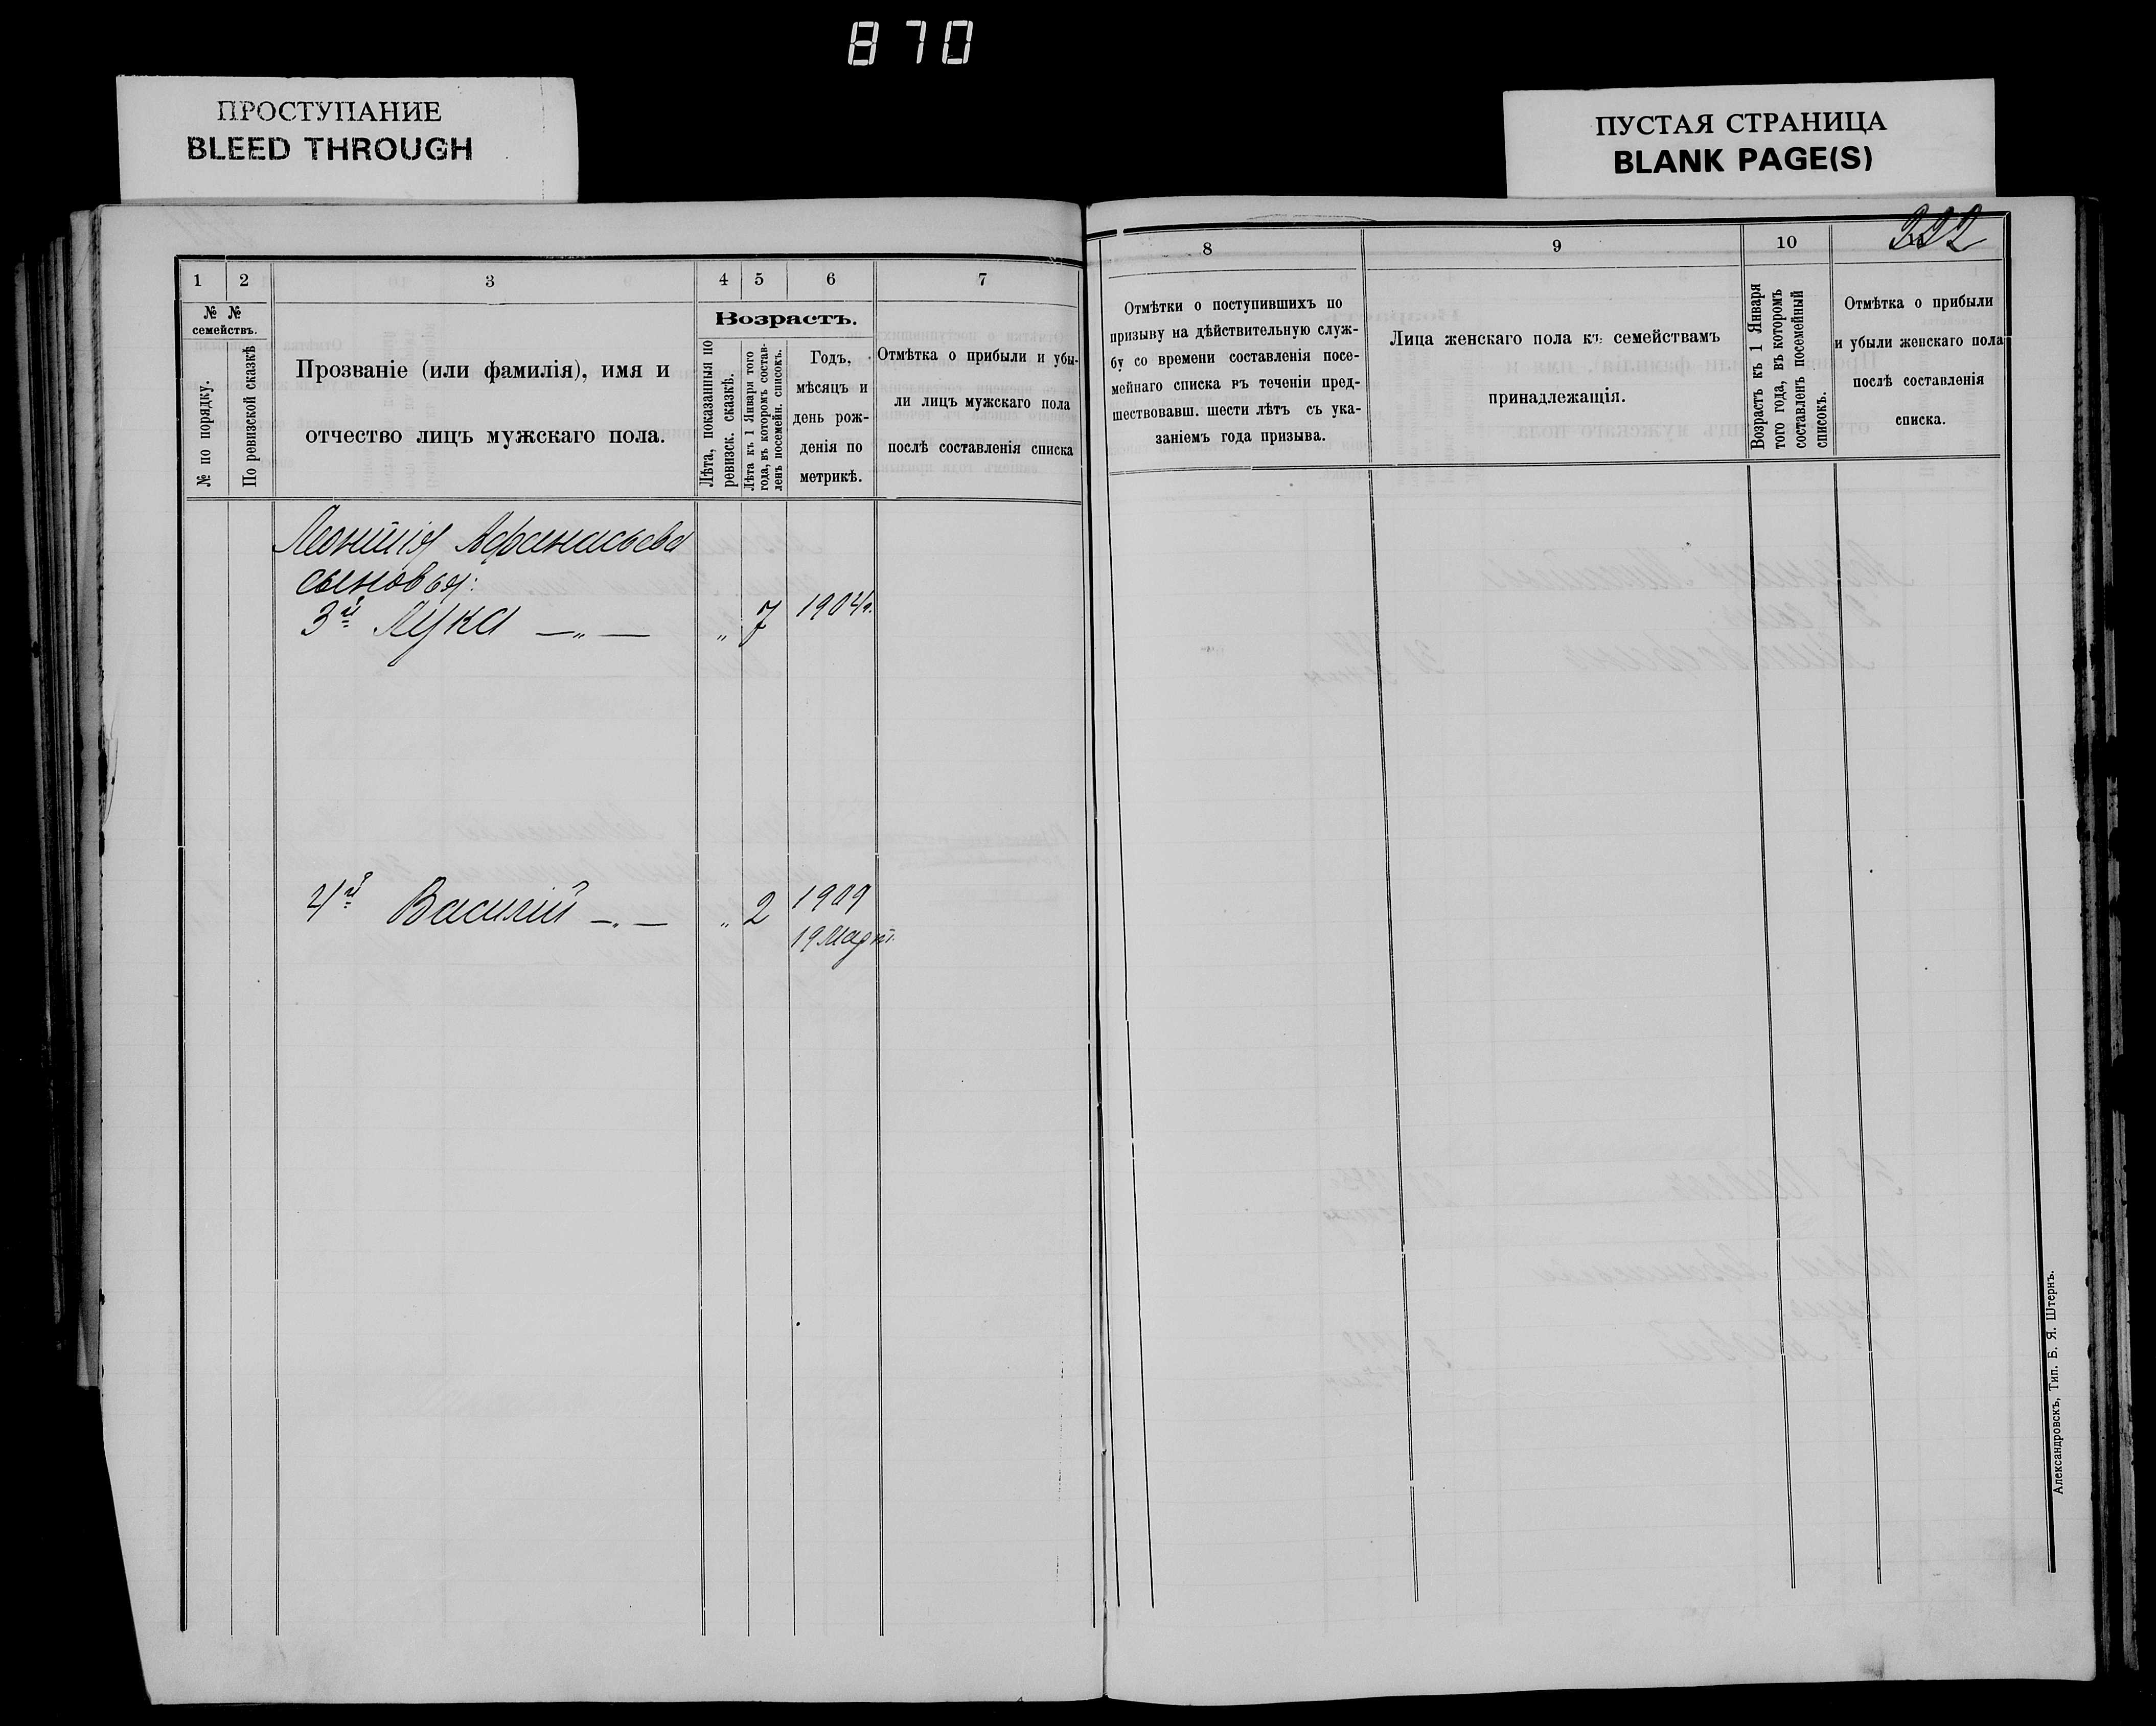 870
ПРОСТУПАНИЕ
BLEED THROUGH
ПУСТАЯ СТРАНИЦА
BLANK PAGE(S)
222
1
2
3
4
5
6
7
№ №
семействъ.
№ по порядку.
По ревизской сказкѣ
Прозваніе (или фамилія), имя и
отчество лицъ мужскаго пола.
Возрастъ.
Лѣта, показанныя по
ревизск. сказкѣ.
Лѣта къ 1 Января того
года, въ которомъ состав-
ленъ посемейн. списокъ.
Годъ,
мѣсяцъ и
день рож-
денія по
метрикѣ.
Отмѣтка о прибыли и убы-
ли лицъ мужскаго пола
послѣ составленія списка
Леонтія Афанасьева
сыновья:
3й Лука —„— „ 7 1904г.
4й Василій —„— „ 2 1909
19 Март.
8
9
10
Отмѣтки о поступившихъ по
призыву на дѣйствительную служ-
бу со времени составленія посе-
мейнаго списка въ теченіи пред-
шествовавш. шести лѣтъ съ ука-
заніемъ года призыва.
Лица женскаго пола къ семействамъ
принадлежащія.
Возрастъ къ 1 Января
того года, въ которомъ
составленъ посемейный
списокъ.
Отмѣтка о прибыли
и убыли женскаго пола
послѣ составленія
списка.
Александровскъ, Тип. Б. Я. Штернъ.